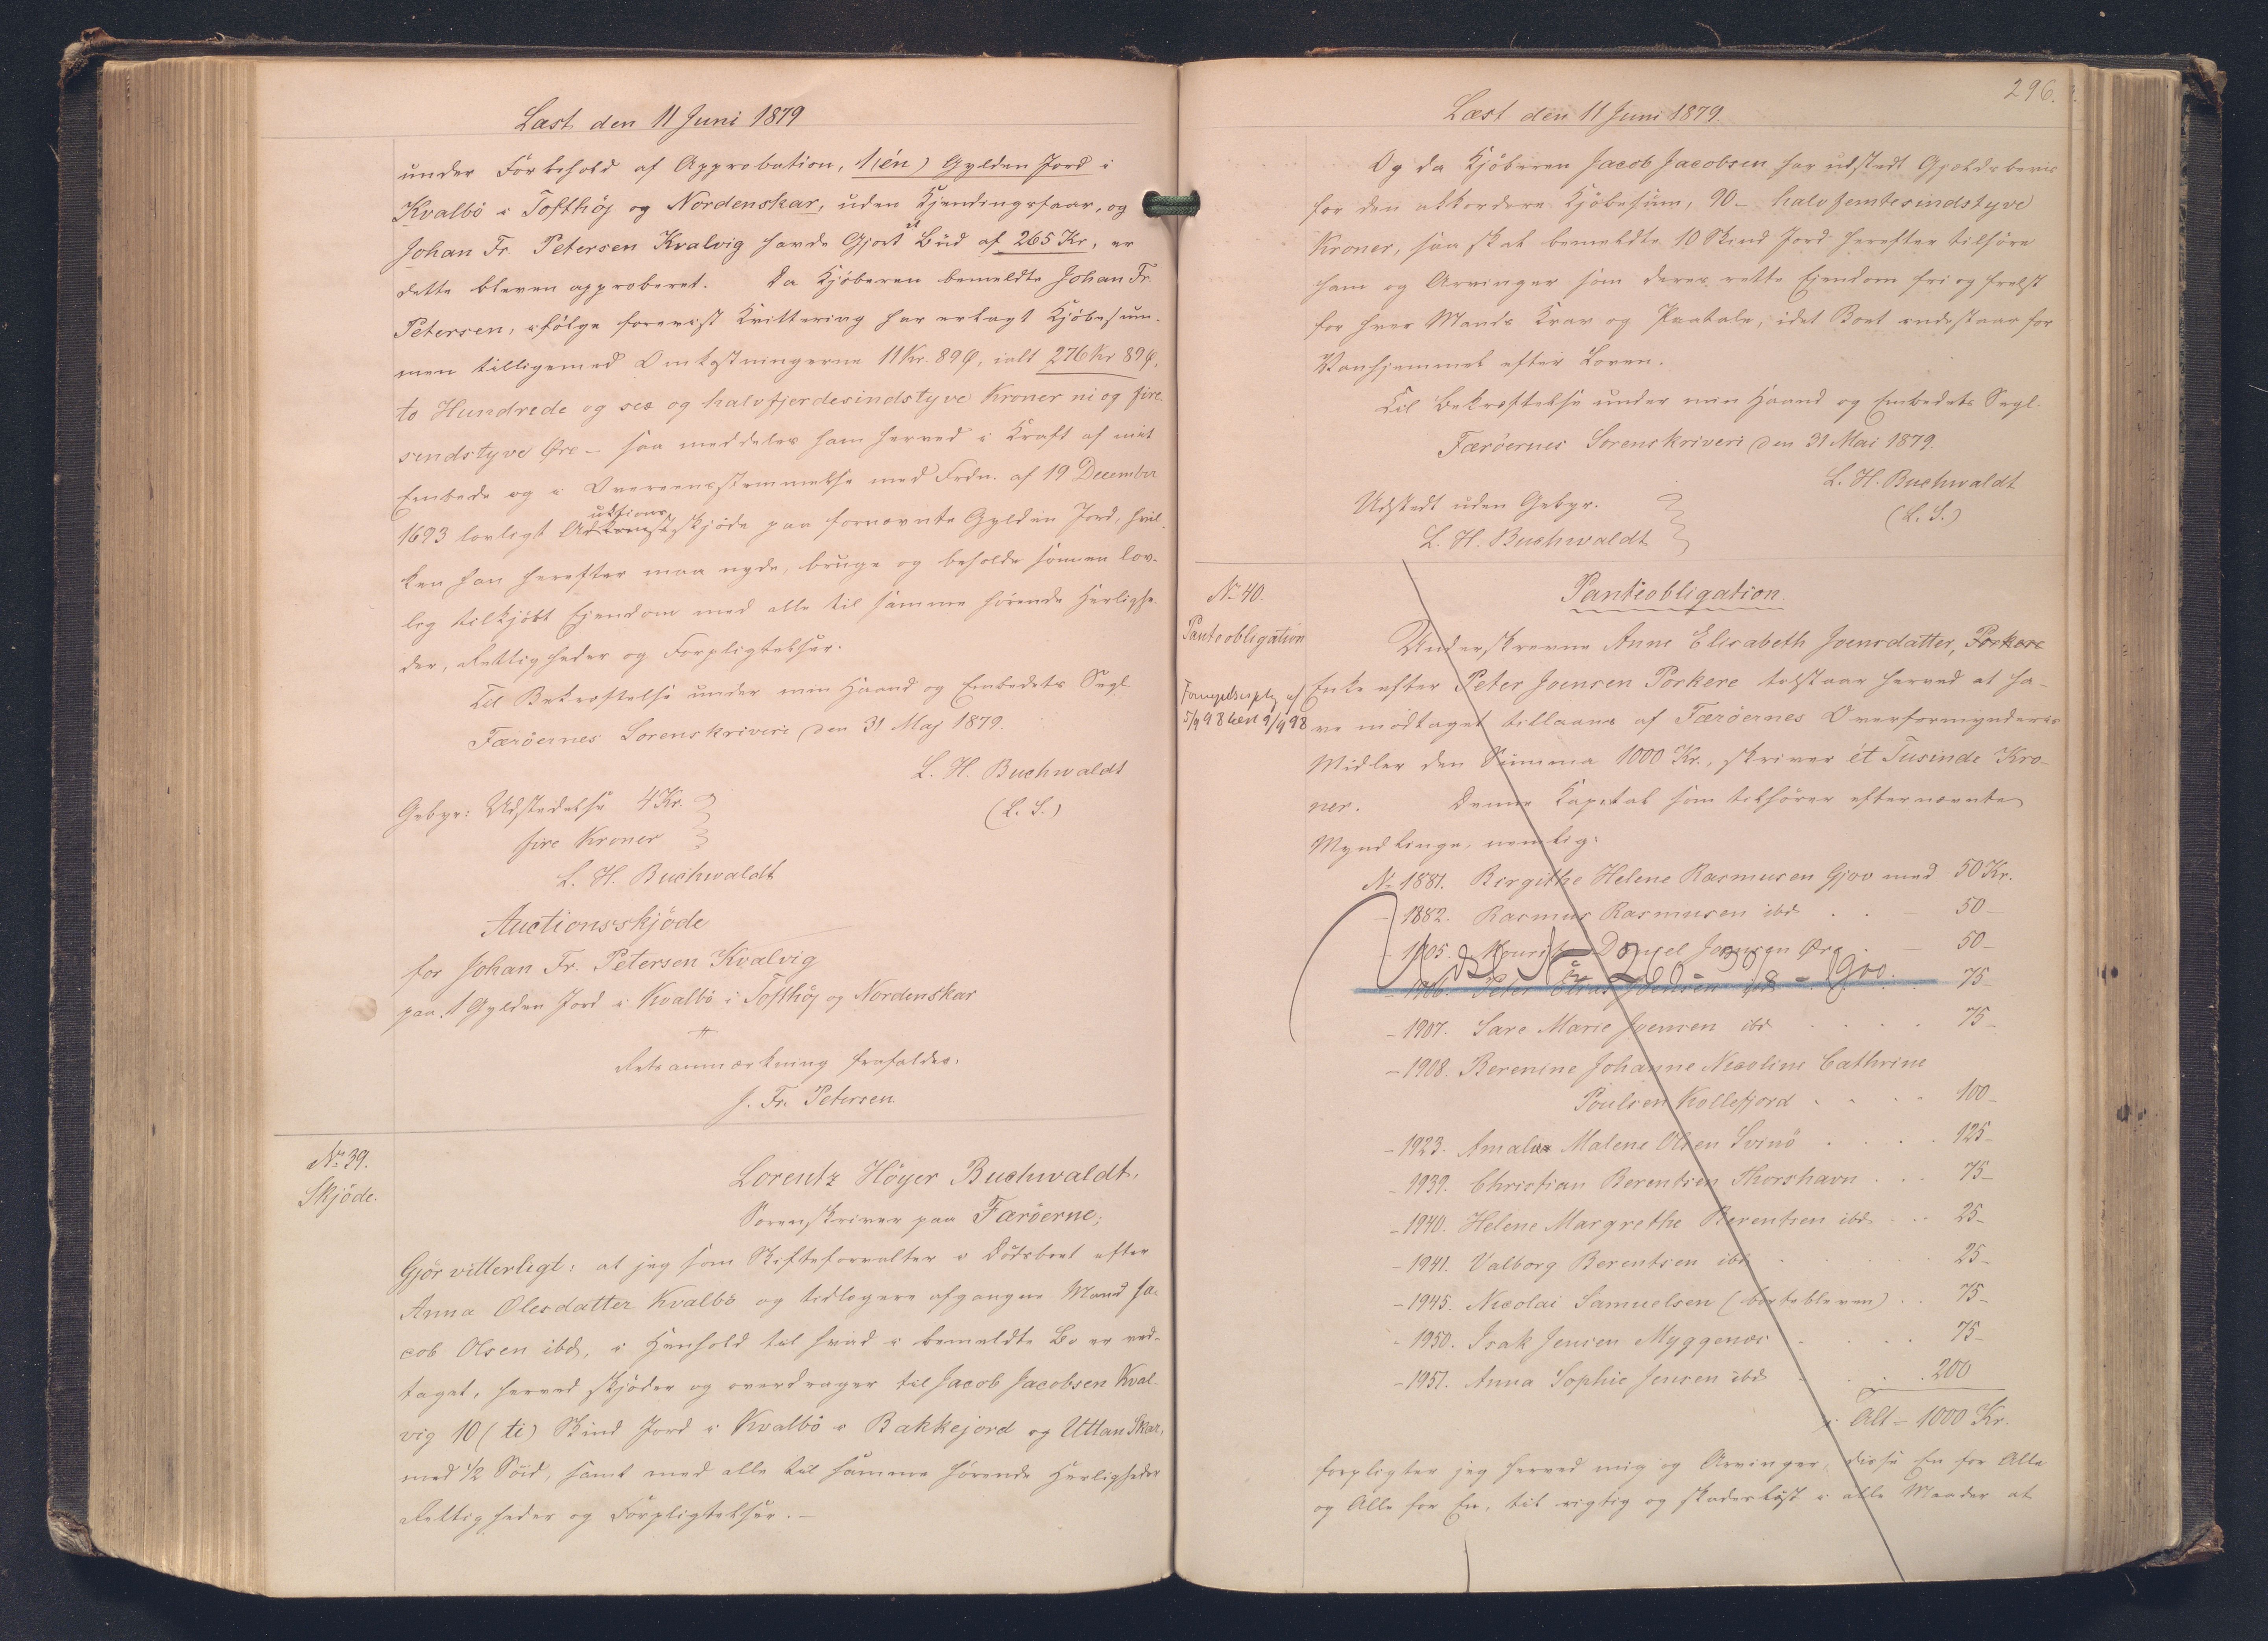 Læst den 11 Juni 1879
under Forbehold af Approbation, 1 (én) Gylden Jord i
Kvalbö i Tofthöj og Nordenskar, uden Kjendingsfaar, og
Johan Fr. Petersen Kvalvig havde Gjort et Bud af 265 Kr., er
dette bleven approberet. Da Kjöberen bemeldte Johan Fr.
Petersen, ifölge forevist Kvittering har erlagt Kjöbesum-
men tilligemed Omkostningerne 11 Kr. 89 Ø, ialt 276 Kr 89 Ø,
to Hundrede og sex og halvfjerdesindstyve Kroner ni og fire-
sendstyve Øre – saa meddeles ham herved i Kraft af mit
Embede og i Overeensstemmelse med Frdn. af 19 December
1693 lovligt Auktionsskjöde paa fornævnte Gylden Jord, hvil-
ken han herefter maa nyde, bruge og beholde som en lov-
lig tilkjöbt Ejendom med alle til samme hörende Herlighe-
der, Rettigheder og Forpligtelser.
Til Bekræftelse under min Haand og Embedets Segl
Færöernes Sorenskriveri den 31 Maj 1879.
L. H. Buchwaldt
(L. S.)
Gebyr: Udstedelse 4 Kr.
fire Kroner
L. H. Buchwaldt
Auctionsskjöde
for Johan Fr. Petersen Kvalvig
paa 1 Gylden Jord i Kvalbö i Tofthöj og Nordenskar
Retsanmærkning frafaldes.
J. Fr. Petersen
No 39.
Skjöde.
Lorentz Höyer Buchwaldt,
Sorenskriver paa Færöerne;
Gjör vitterligt: at jeg som Skifteforvalter i Dödsboet efter
Anna Olesdatter Kvalbö og tidligere afgangne Mand Ja-
cob Olsen ibd, i Henhold til hvad i bemeldte Bo er ved-
taget, herved skjöder og overdrager til Jacob Jacobsen Kval-
vig 10 (ti) Skind Jord i Kvalbö i Bakkejord og Uttan Skar,
med 1/2 Söid, samt med alle til samme hörende Herligheder
Rettigheder og Forpligtelser. –
296.
Læst den 11 Juni 1879
Og da Kjöberen Jacob Jacobsen har udstedt Gjældsbevis
for den akkordere Kjöbesum, 90 – halvfemtesindstyve
Kroner, saa skal bemeldte 10 Skind Jord herefter tilhöre
ham og Arvinger som deres rette Ejendom fri og frelst
for hver Mands Krav og Paatale, idet Boet indestaar for
Vanhjemmel efter Loven.
Til Bekræftelse under min Haand og Embedets Segl.
Færöernes Sorenskriveri den 31 Mai 1879.
L. H. Buchwaldt
(L. S.)
Udstedt uden Gebyr.
L. H. Buchwaldt
No 40.
Panteobligation
5/9 98 læst 9/9 98
Panteobligation.
Underskrevne Anne Elisabeth Joensdatter, Porkere
Enke efter Peter Joensen Porkere tilstaar herved at ha-
ve modtaget tillaans af Færöernes Overformynderis
Midler den Summa 1000 Kr., skriver ét Tusinde Kro-
ner. Denne Kapital som tilhörer efternævnte
Myndlinge, nemlig:
No 1881. Birgithe Helene Rasmusen Gjov med 50 Kr.
– 1882. Rasmus Rasmusen ibd . . – 50 –
– 1905. Mourits Daniel Joensen Øre . – 50 –
– 1906. Peter Elias Joensen ibd . . 75 –
– 1907. Sare Marie Joensen ibd . . . . 75 –
– 1908. Berenine Johanne Nicoline Cathrine
Poulsen Kollefjord . . . . 100 –
– 1923. Amalia Malene Olsen Svinö . . . . 125 –
– 1939. Christian Berentsen Thorshavn . . . 75 –
– 1940. Helene Margrethe Berentsen ibd . . 25 –
– 1941. Valborg Berentsen ibd . . . . 25 –
– 1945. Nicolai Samuelsen (bortebleven) . . 75 –
– 1950. Isak Jensen Myggenæs . . . . 75 –
– 1951. Anna Sophie Jensen ibd . . . . 200
i Alt – 1000 Kr.
forpligter jeg herved mig og Arvinger, disse En for Alle
og Alle for En, til rigtig og skadeslöst i alle Maader at